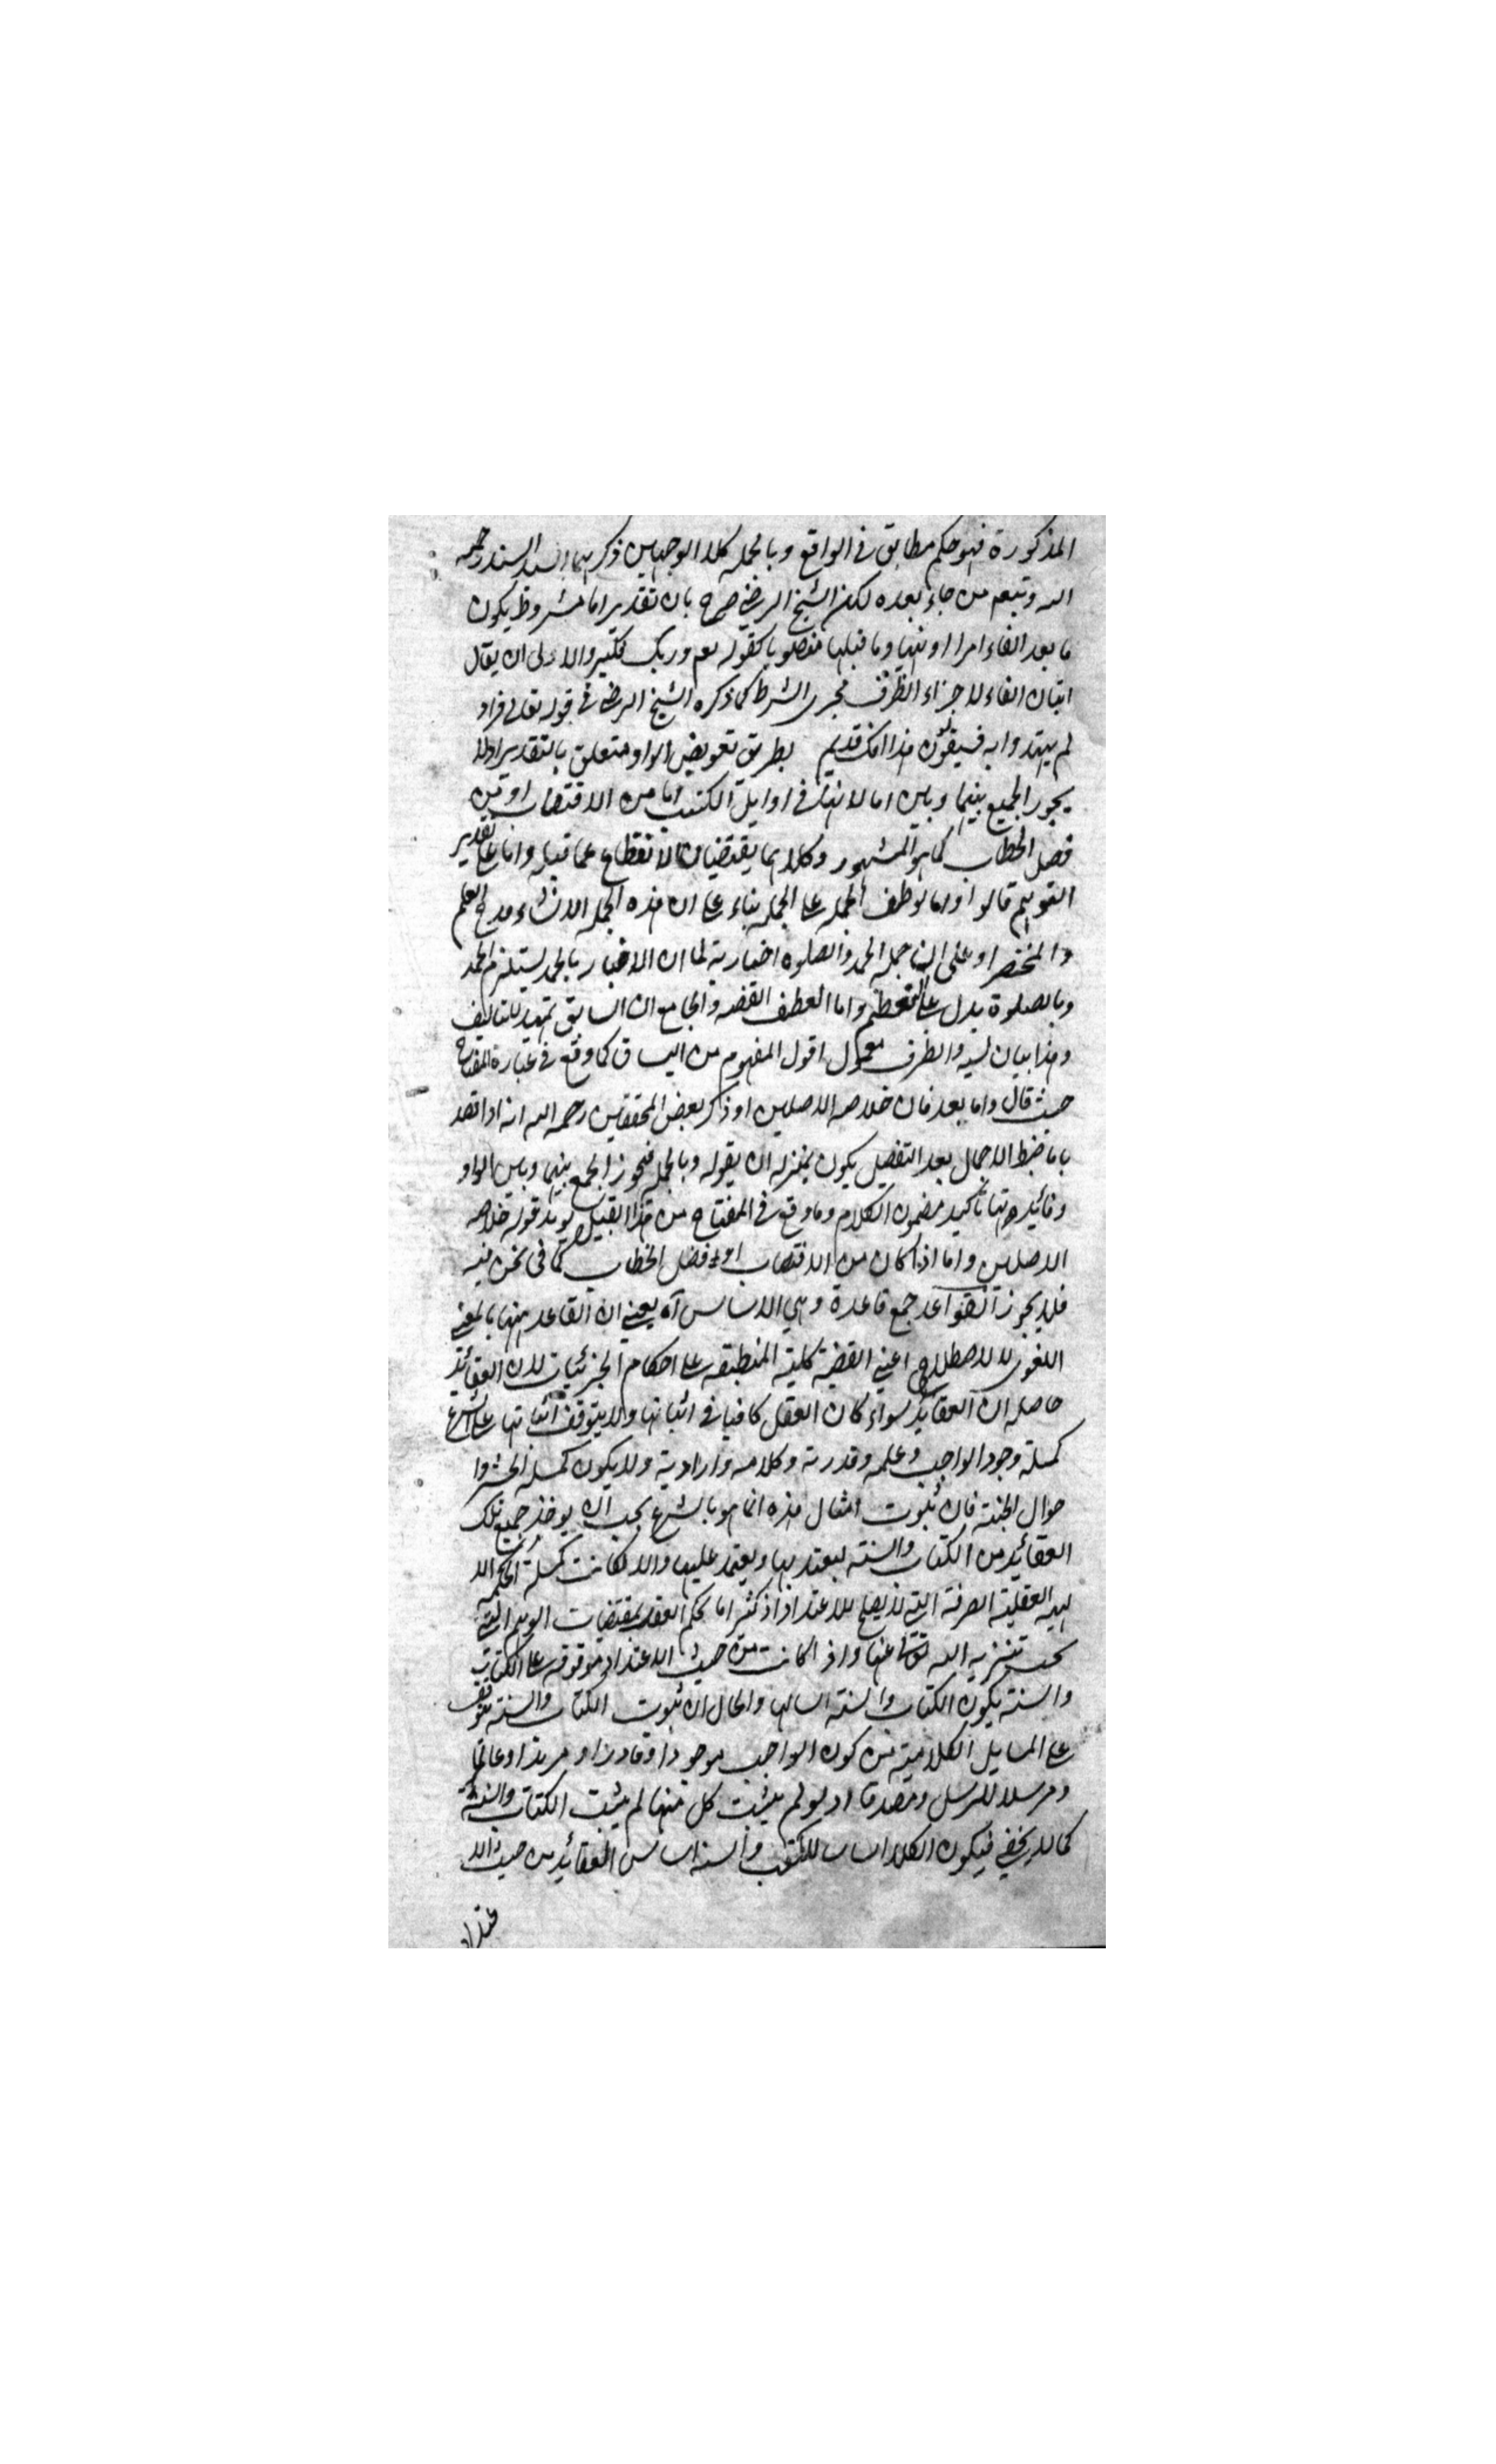 المذكورة فهو حكم مطابق في الواقع وبالجمله كلا الوجهين ذكرهما السيد السند رحمه
الله وتبعه من جاء بعده لكن الشيخ الرضي صرح بان تقدير اما مشروط بكون
ما بعد الفاء امرا او نهيا وما قبلها منصوبا كقوله تعم وربك فكبر والاولى ان يقال
اتيان الفاء لاجراء الظرف مجرى الشرط كما ذكره الشيخ الرضي في قوله تعالى واذ
لم يهتدوا به فسيقولون هذا افك قديم بطريق تعويض الواو متعلق بالتقدير اذ لا
يجوز الجمع بينهما وبين اما لانها في اوايل الكتب اما من الاقتضاب او من
فصل الخطاب كما هو المشهور وكلاهما يقتضيان الانقطاع عما قبله واما على تقدير
التوهم قالوا اما لعطف الجمله على الجمله بناء على ان هذه الجمله الانشاء مدح العلم
والمختصر او على ان جمله الحمد والصلوه اخبارية لما ان الاخبار بالحمد يستلزم الحمد
وبالصلوة يدل على التعظيم واما العطف القصه والجامع ان السابق تمهيد للتاليف
وهذا بيان لسببه والظرف معمول اقول المفهوم من السياق كما وقع في عبارة المفتاح
حيث قال واما بعد فان خلاصه الاصلين او ذكر بعض المحققين رحمه الله انه اذا قصد
باما ضبط الاجمال بعد التفصيل يكون بمنزله ان يقوله وبالجمله فيجوز الجمع بينها وبين الواو
وفائيدتها تاكيد مضمون الكلام وما وقع في المفتاح من هذا القبيل يويد قوله خلاصه
الاصلين واما اذا كان من الاقتضاب او فصل الخطاب كما في نحن فيه
فلا يجوز القواعد جمع قاعدة وهي الاساس آه يعني ان القاعد ههنا بالمعنى
اللغوى لا الاصطلاحي اعني القضية كلية المنطبقه على احكام الجزئيات لان العقائد
حاصله ان العقائد سواء كان العقل كافيا في اثباتها والا يتوقف اثباتها على الشرع
كمسلة وجود الواجب وعلمه وقدرته وكلامه وارادته ولا يكون كمسله الحشر وا
حوال الجنة فان ثبوت امثال هذه انما هو بالشرع يجب ان يوخذ جميع تلك
العقائد من الكتاب والسنته ليعتد بها ويعتمد عليها والا لكانت كمسلة الحكمه الا
لهيه العقلية الصرفة التي لا يصلح للاعتداد اذ كثيرا ما يحكم العقل بمقتضيات الوهم التي
يجب تنزيه الله تعالى عنها واذا كانت من حيث الاعتداد موقوفه على الكتاب
والسنة يكون الكتاب والسنته اساسا لها والحال ان ثبوت الكتاب والسنة يتوقف
على المسايل الكلامية من كون الواجب موجودا وقادرا او مريدا وعالما
ومرسلا للرسل ومصدقا اذ لو لم يثبت كل منها لم يثبت الكتاب والسنة
كما لا يخفى فيكون الكلام اساسا للكتاب والسنه اساس العقائد من حيث الا
عتداد